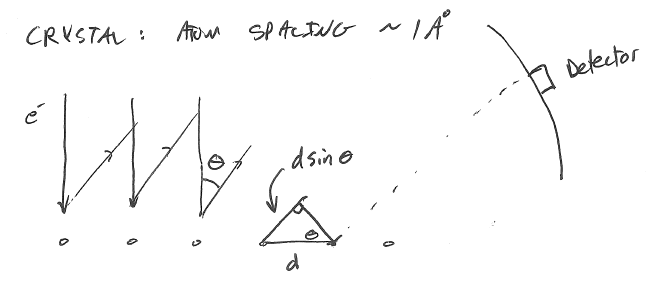 CRYSTAL : ATOM SPACING ~ 1 Å
Detector
e⁻
θ
d sin θ
θ
d